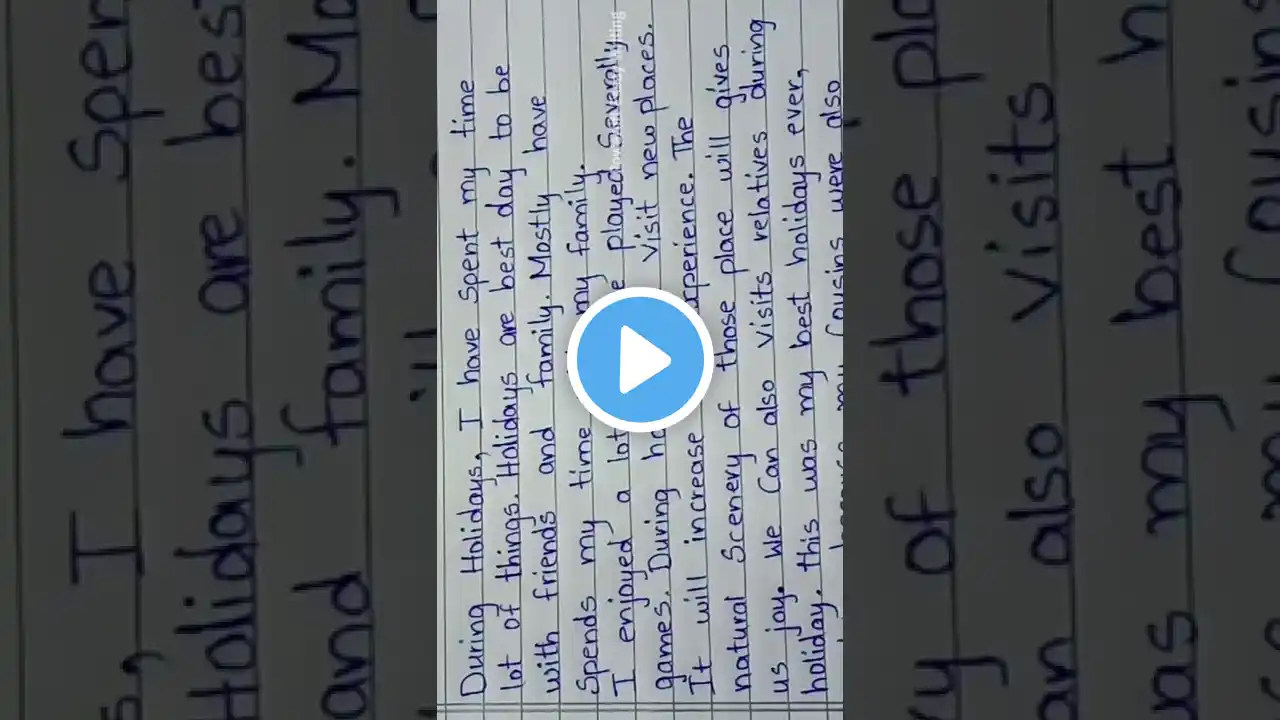 During Holidays, I have spent my time
lot of things. Holidays are best day to be
with friends and family. Mostly have
Spends my time my family.
I enjoyed a lot played Severally
games. During visit new places.
It will increase experience. The
natural Scenery of those place will gives
us joy. We Can also visits relatives during
holiday. this was my best holidays ever,
my Cousins were also